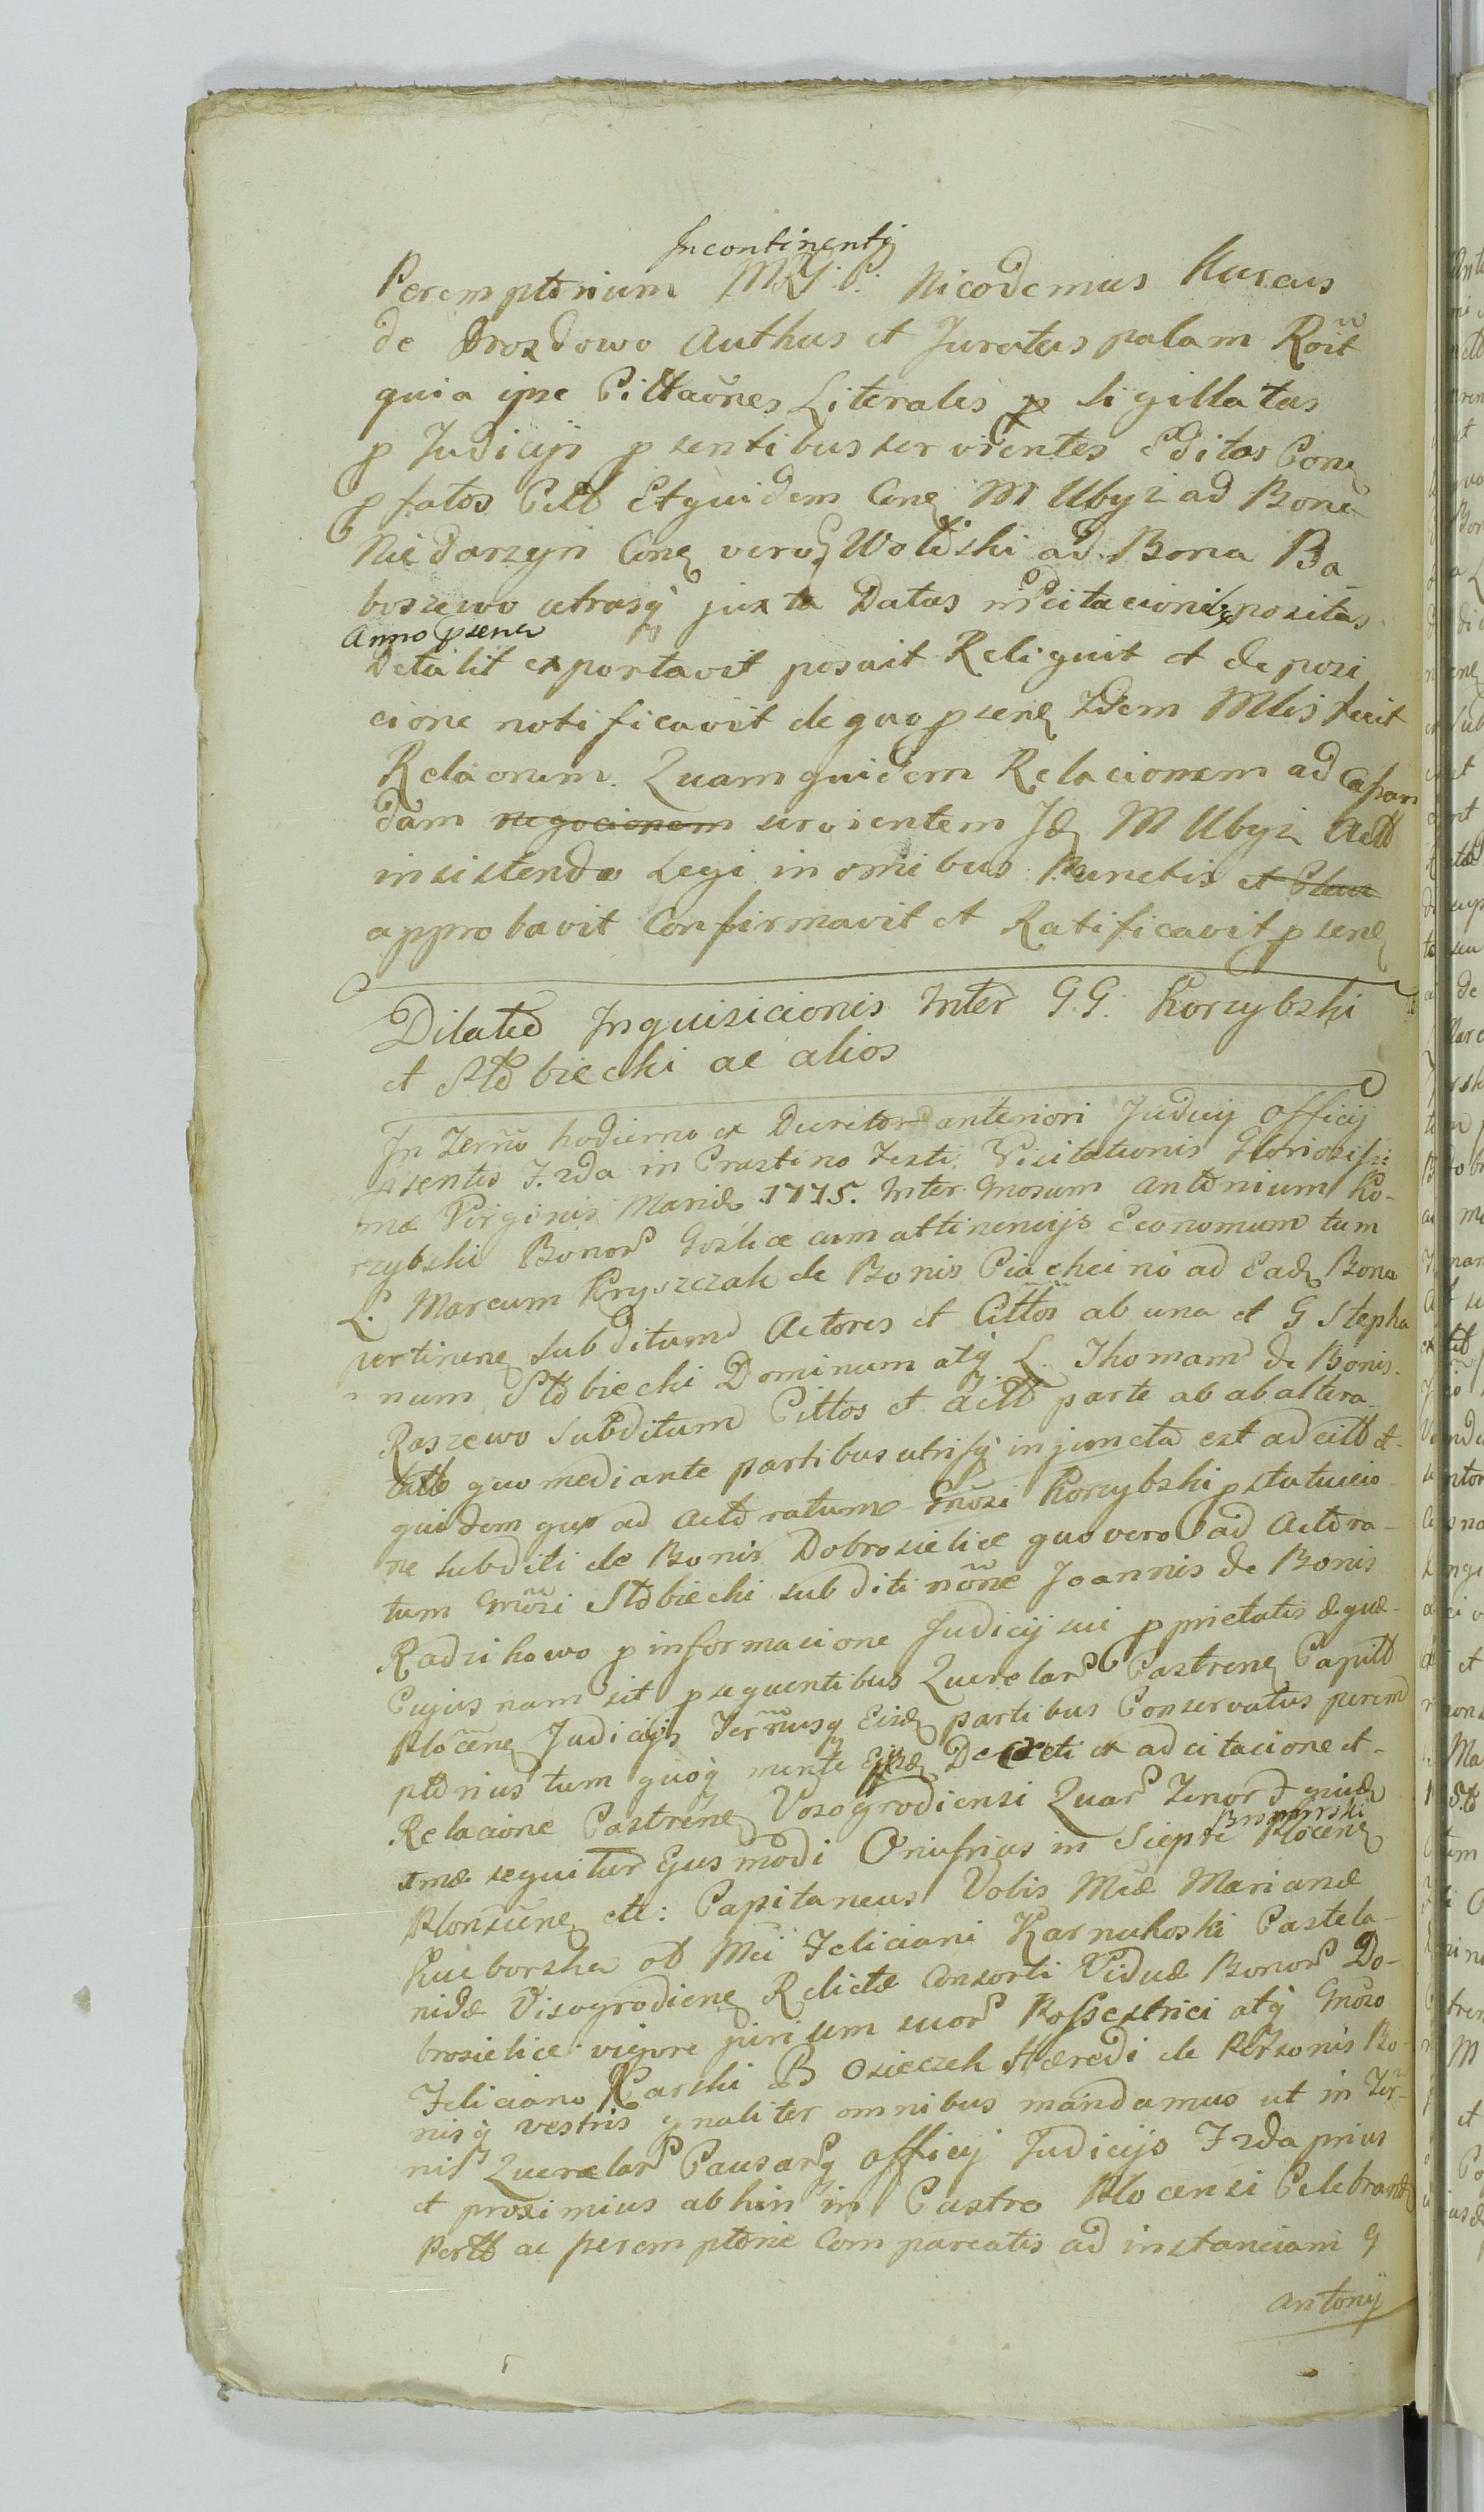 Incontinenti
Peremptorium MRS. P. Nicodemus Kureus
de Drozdowo Authus et Juratus palam Roit
quia ipse Cittaões Literales p sigillatas
p Judicijs psentibus servientes Editas Conq
p fatos Citt Et quidem Conq M Ubyz ad Bona
Niedarzyn Conq vero G Wolski ad Bona Ba-
boszewo utrasq juxta Datas in citacionibq positas
Anno psenti
Detulit exportavit posuit Reliquit et de posi
cione notificavit de quo psenq Idem Mlis fecit
Relaonem. Quam quidem Relacionem ad Cassan
dam negocionem servientem Id M Ubyz Actt
insistendo Legi in omibus Punctis et Claus
approbavit Confirmavit et Ratificavit psenq
Dilatio Inquisicionis Inter G.G. Korzybski
et Stobiecki ac alios
In Termo hodierno ex Decreto anteriori Judicij Officij
psentis F. 2da in Crastino Festi Visitationis Gloriosissi
mæ Virginis Mariæ 1775. Inter Gnosum Antonium Ko-
rzybski Bonor Goslice cum attinencijs Economum tum
L. Marcum Kryszczak de Bonis Ciachcino ad Eadq Bona
pertinenq subditum Actores et Cittos ab una et G Stepha
num Stobiecki Dominum atq L. Thomam de Bonis
Raszewo Subditum Cittos et Actt parte ab ab altera
latt quo mediante partibus utrisq injuncta est adcitt et
quidem quo ad Actoratum Gnosi Korzybski p statucio
ne subditi de Bonis Dobrosielice quo vero ad Actora-
tum Gnosi Stobiecki subditi noñe Joannis de Bonis
Radzikowo p informacione Judicij sui pprietatis æquæ
Cujus nam sit psequentibus Querelar Castrenq Capitt
Plocenq Judicijs Termusq Eisdq partibus Conservatus perem
ptorius tum quoq mente Ejusdq Decreti et adcitacione et
Relacione Castrenq Vysogrodiensi Quar Tenor
mæ sequitur Ejusmodi Onufrius in Sieprc Bromirski Plocenq
Plonscenq ett: Capitaneus Vobis Mcæ Mariannæ
Kuciborska ol Mci Feliciani Karnkoski Castela-
nidæ Visogrodienq Relictæ Consorti Viduæ Bonor Do-
brosielice vigore jurium suor Possestrici atq Gnoso
Feliciano Karski B Osieczek Hæredi de Personis Bo-
nisq vestris gnaliter omnibus mandamus ut in Ter-
nis Querelar Causarq Officij Judicijs F 2da prius
et proximius abhin in Castro Plocensi Celebrand
Pertt ac peremptorie Compareatis ad instanciam G
Antonij